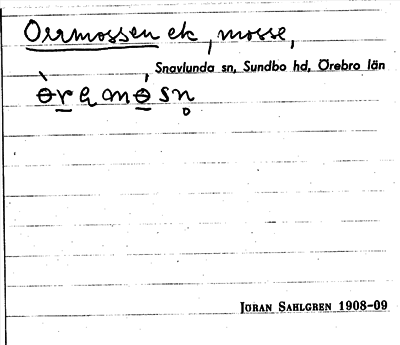 Orrmossen ek, mosse,
Snavlunda sn, Sundbo hd, Örebro län
JÖRAN SAHLGREN 1908-09